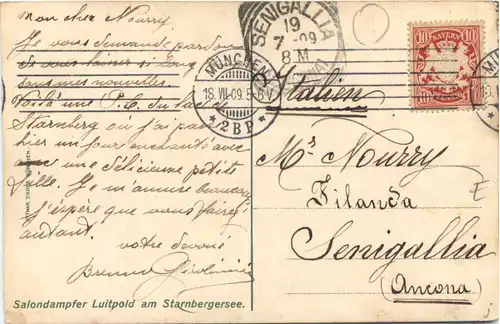 mon cher Nourry
Je vous demande pardon
de vous laisser si long
sans mes nouvelles.
Voilà une P.C. du lac de
Starnberg où j'ai passé
hier un jour enchanté avec
une délicieuse petite
fille. Je m'amuse beaucoup
J'espère que vous faites
autant.
votre dévoué
Salondampfer Luitpold am Starnbergersee.
SENIGALLIA
19
7 -09
8 M
MÜNCHEN
18. VII. 09. 5-6 V
* 2 BP *
BAYERN
10 10
10 10
Italien
Mr Nourry
Filanda
Senigallia
(Ancona)
E